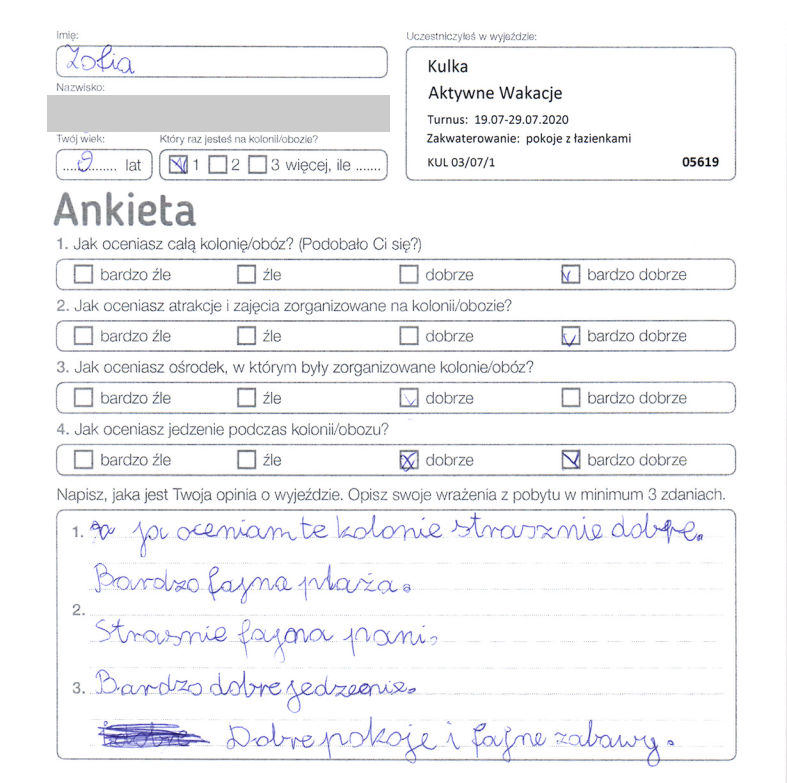 Imię:
Zofia
Uczestniczyłeś w wyjeździe:
Kulka
Aktywne Wakacje
Turnus: 19.07-29.07.2020
Zakwaterowanie: pokoje z łazienkami
KUL 03/07/1 05619
Nazwisko:
Twój wiek: Który raz jesteś na kolonii/obozie?
....9....... lat 1 2 3 więcej, ile .......
Ankieta
1. Jak oceniasz całą kolonię/obóz? (Podobało Ci się?)
bardzo źle źle dobrze bardzo dobrze
2. Jak oceniasz atrakcje i zajęcia zorganizowane na kolonii/obozie?
bardzo źle źle dobrze bardzo dobrze
3. Jak oceniasz ośrodek, w którym były zorganizowane kolonie/obóz?
bardzo źle źle dobrze bardzo dobrze
4. Jak oceniasz jedzenie podczas kolonii/obozu?
bardzo źle źle dobrze bardzo dobrze
Napisz, jaka jest Twoja opinia o wyjeździe. Opisz swoje wrażenia z pobytu w minimum 3 zdaniach.
1. ja oceniam te kolonie strasznie dobrze.
Bardzo fajna plaża.
2.
Strasnie fajna pani.
3. Bardzo dobre jedzenie.
Dobre pokoje i fajne zabawy.